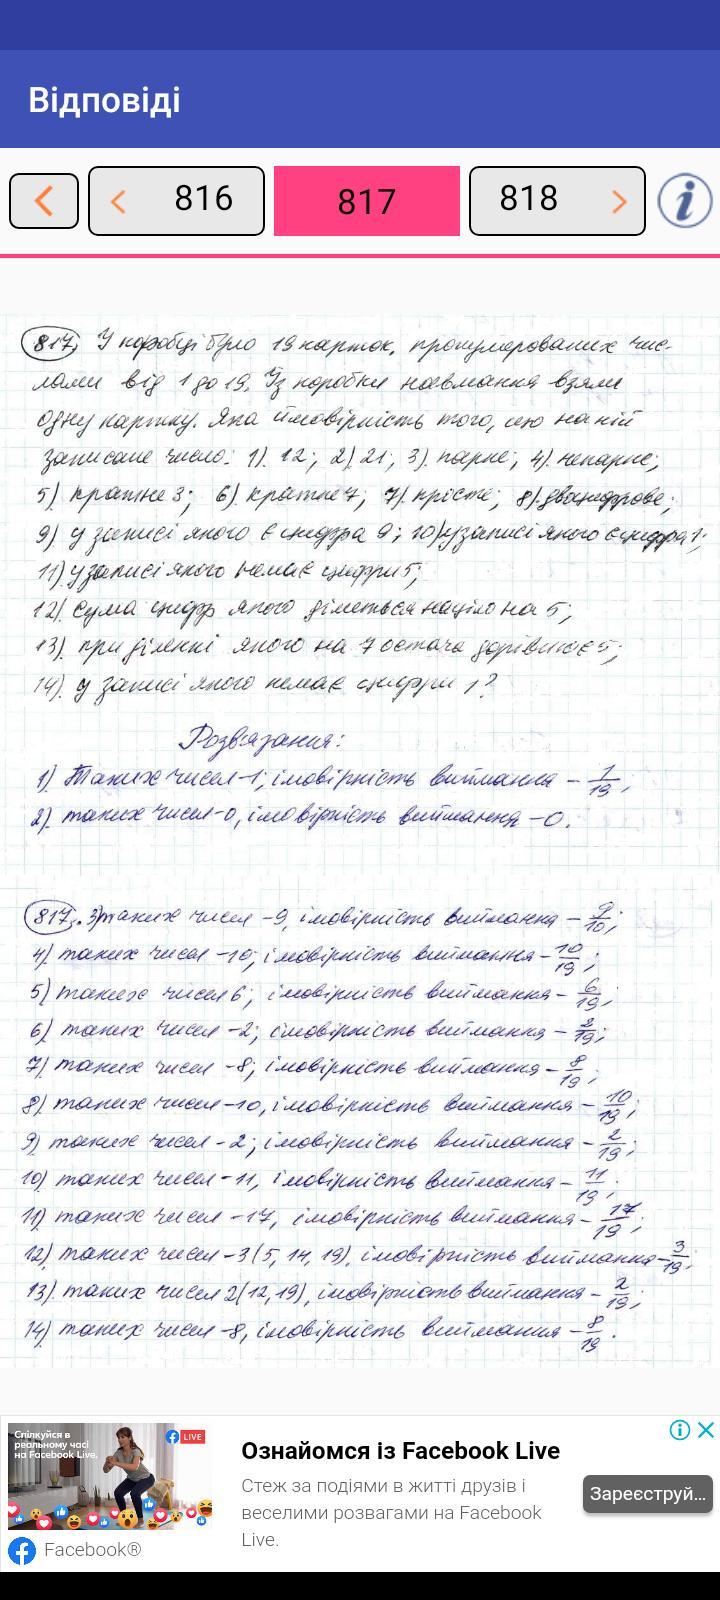 Відповіді
816
817
818
817. У коробці було 19 карток, пронумерованих чис-
лами від 1 до 19. Із коробки навмання взяли
одну картку. Яка ймовірність того, що на ній
записане число: 1). 12; 2). 21; 3). парне; 4). непарне;
5). кратне 3; 6). кратне 7; 7). прісте; 8). двоцифрове;
9). у записі якого є цифра 9; 10) у записі якого є цифра 1;
11) у записі якого немає цифри 5;
12). сума цифр якого ділиться націло на 5;
13). при діленні якого на 7 остача дорівнює 5;
14). у записі якого немає цифри 1?
Розв'язання:
1). Таких чисел -1; імовірність виймання - 1/19;
2). таких чисел -0, імовірність виймання - 0.
817. 3) таких чисел -9, імовірність виймання - 9/10;
4) таких чисел -10; імовірність виймання - 10/19;
5) таких чисел 6; імовірність виймання - 6/19;
6). таких чисел -2; імовірність виймання - 2/19;
7). таких чисел -8; імовірність виймання - 8/19;
8). таких чисел -10, імовірність виймання - 10/19;
9) таких чисел - 2; імовірність виймання - 2/19;
10). таких чисел - 11, імовірність виймання - 11/19;
11). таких чисел -17, імовірність виймання - 17/19;
12). таких чисел - 3 (5, 14, 19), імовірність виймання - 3/19;
13). таких чисел 2 (12, 19), імовірність виймання - 2/19;
14). таких чисел -8, імовірність виймання - 8/19.
Спілкуйся в
реальному часі
на Facebook Live.
LIVE
Ознайомся із Facebook Live
Стеж за подіями в житті друзів і
веселими розвагами на Facebook
Live.
Зареєструй...
Facebook®